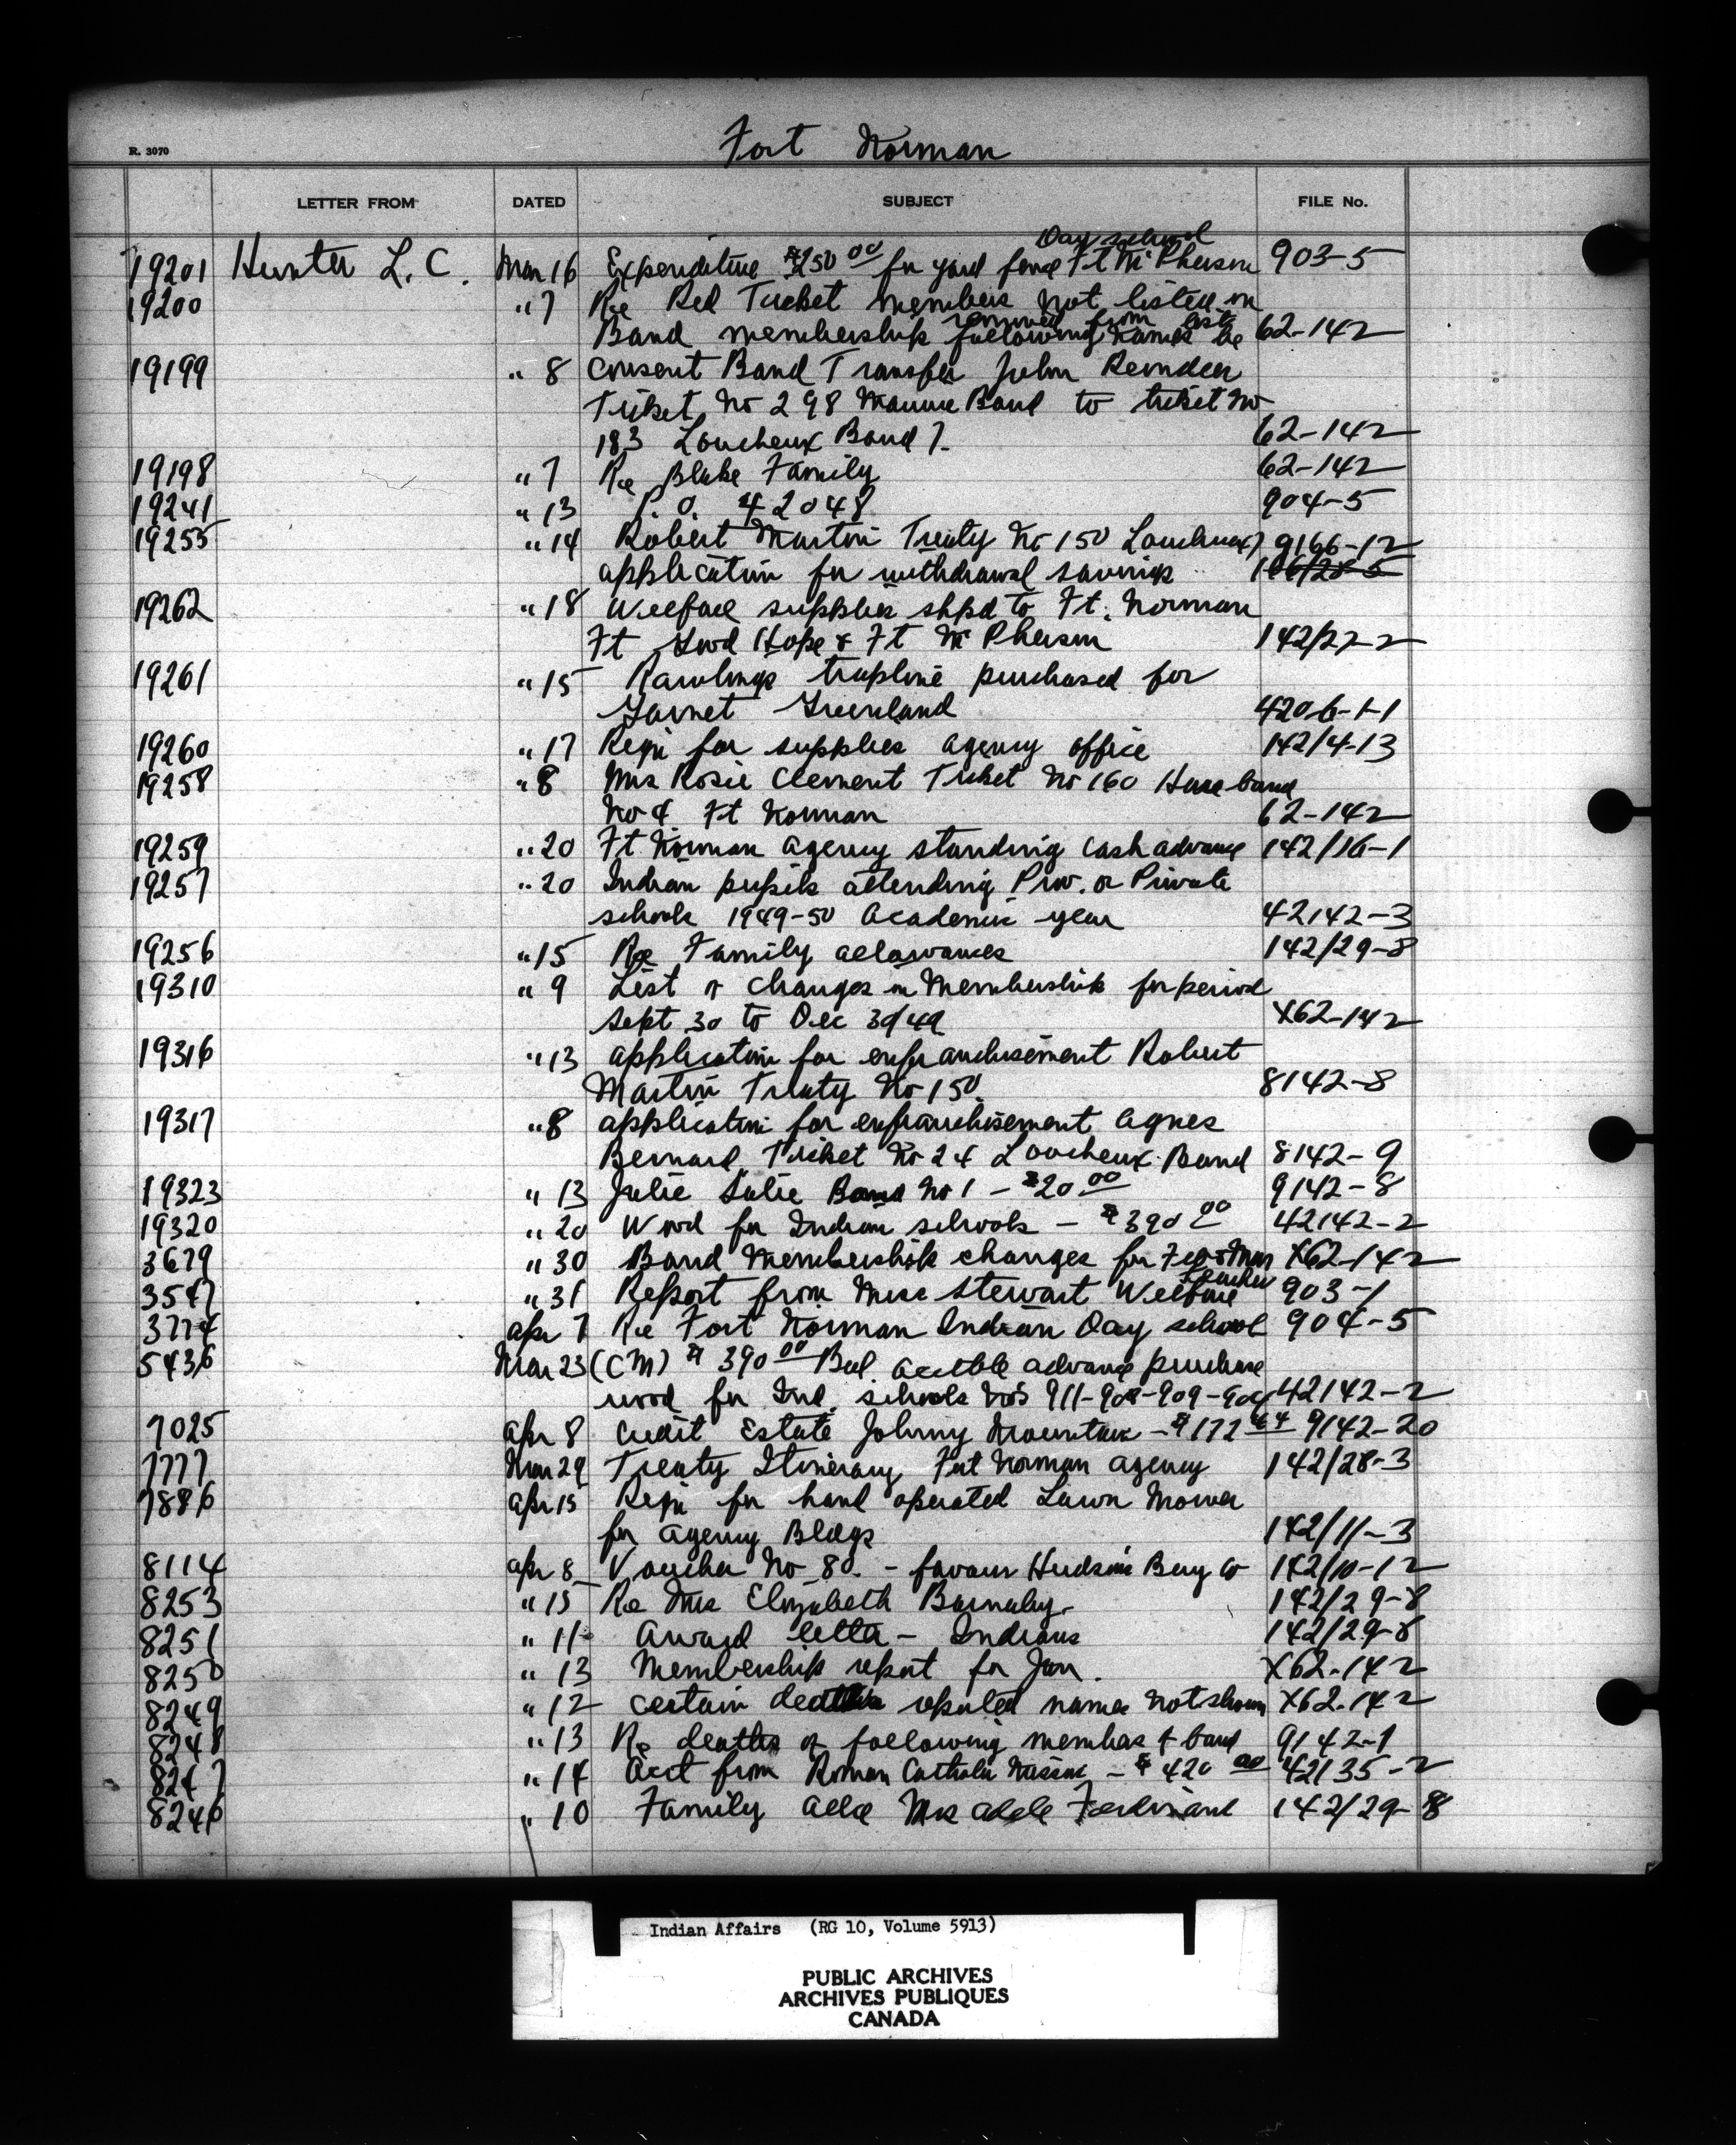 Fort Norman
R. 3070
LETTER FROM DATED SUBJECT FILE No.
Day school
19201 Hunter L. C. Mar 16 Expenditure $250 00 for yard fence Ft McPherson 903-5
19200 " 7 Re Red Ticket members not listed on
removed from list
Band membership following names be 62-142
19199 " 8 Consent Band Transfer John Reindeer
Ticket No 298 Band to ticket No
183 Loucheux Band 7. 62-142
19198 " 7 Re Blake Family 62-142
19241 " 13 P. O. 42048 904-5
19255 " 14 Robert Martin Treaty No 150 Loucheux 7 9166-12
application for withdrawal savings 106/28-5
19262 " 18 Welfare supplies shpd to Ft. Norman
Ft Good Hope & Ft McPherson 142/22-2
19261 " 15 Rawlings trapline purchased for
Garnet Greenland 420-6-1-1
19260 " 17 Reqn for supplies agency office 142/4-13
19258 " 8 Mrs Rosie Clement Ticket No 160 Hare band
No 4 Ft Norman 62-142
19259 " 20 Ft Norman Agency standing cash advance 142/16-1
19257 " 20 Indian pupils attending Prov. or Private
schools 1949-50 Academic year 42142-3
19256 " 15 Re Family allowances 142/29-8
19310 " 9 List of changes in Membership for period
Sept 30 to Dec 30/49 X62-142
19316 " 13 application for enfranchisement Robert
Martin Treaty No 150. 8142-8
19317 " 8 application for enfranchisement Agnes
Bernard Ticket No 24 Loucheux Band 8142-9
19323 " 13 Julie Julie Band No 1 - $20 00 9142-8
19320 " 20 Wood for Indian schools - $390 00 42142-2
3679 " 30 Band Membership changes for Feb & Mar X62-142
Teacher
3547 " 31 Report from Miss Stewart Welfare 903-1
3774 Apr 7 Re Fort Norman Indian Day school 904-5
5436 Mar 23 (CM) $390 00 Bal. acctble advance purchase
wood for Ind. schools Nos 911-908-909-904 42142-2
7025 Apr 8 Credit Estate Johnny Mountain - $172 44 9142-20
7777 Mar 29 Treaty Itinerary Fort Norman Agency 142/28-3
7886 Apr 15 Reqn for hand operated Lawn Mower
for Agency Bldgs 142/11-3
8114 Apr 8 Voucher No 80. - favour Hudson's Bay Co 142/10-12
8253 " 15 Re Mrs Elizabeth Barnaby. 142/29-8
8251 " 11 Award letter - Indians 142/29-8
8250 " 13 Membership report for Jan. X62-142
8249 " 12 certain deaths reported names not shown X62-142
8248 " 13 Re deaths of following members of band 9142-1
8247 " 14 Acct from Roman Catholic Mission - $420 00 42135-2
8246 " 10 Family Allce Mrs Adele Ferdinand 142/29-8
Indian Affairs (RG 10, Volume 5913)
PUBLIC ARCHIVES
ARCHIVES PUBLIQUES
CANADA